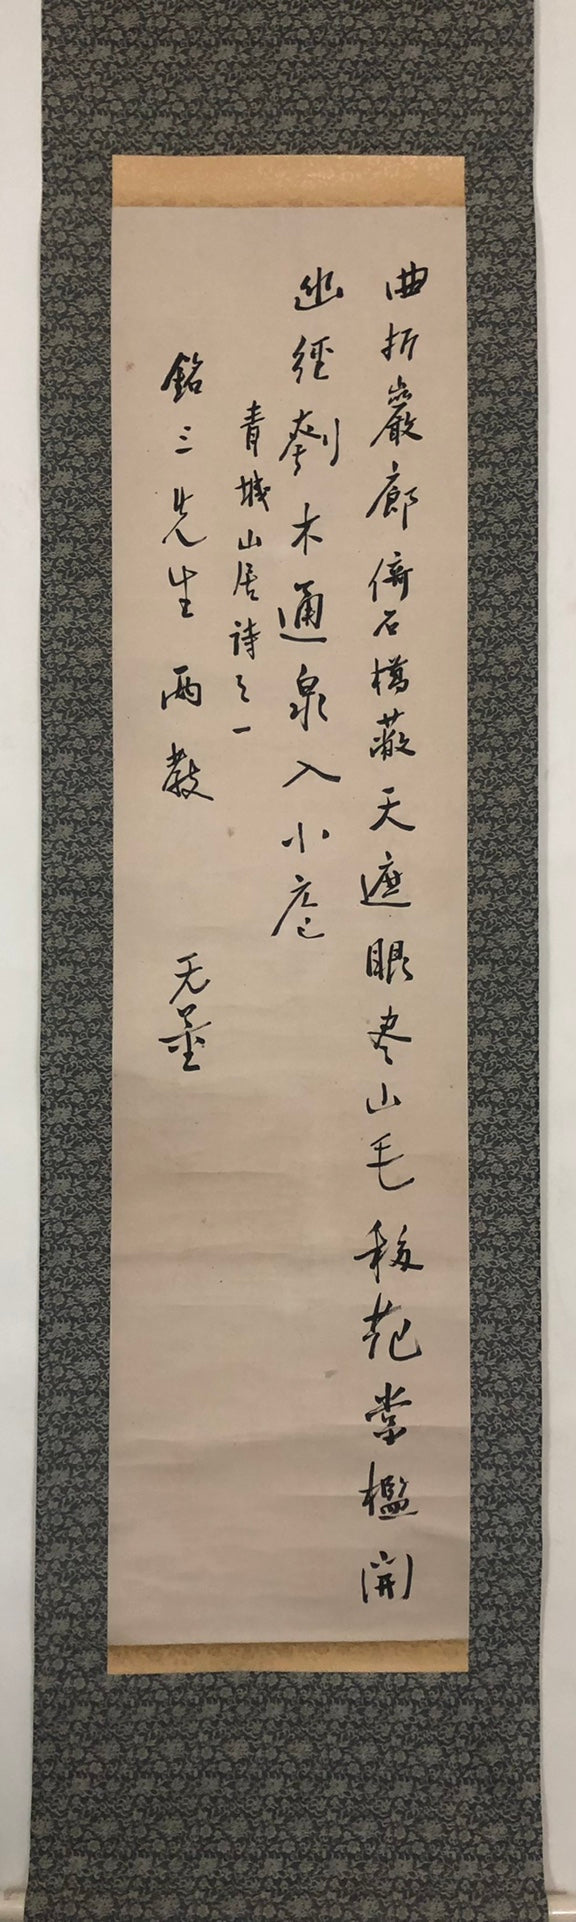 曲折巖廊倚石橋蔽天遮眼盡山毛移花當檻開
幽徑刳木通泉入小庖
青城山居詩之一
銘三先生兩教
无量